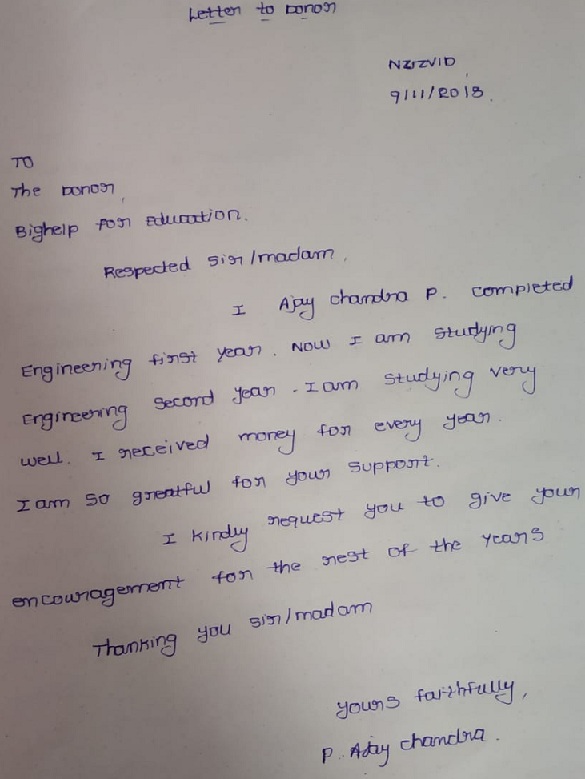 Letter to Donor
NZRZVID
9/11/2018.
TO
The Donor,
Bighelp for Education.
Respected Sir/madam,
I Ajay chandra P. completed
Engineering first year. Now I am studying
Engineering Second year. I am studying very
well. I received money for every year.
I am so greatful for your support.
I kindly request you to give your
encouragement for the rest of the years
Thanking you sir/madam
yours faithfully,
P. Ajay chandra.